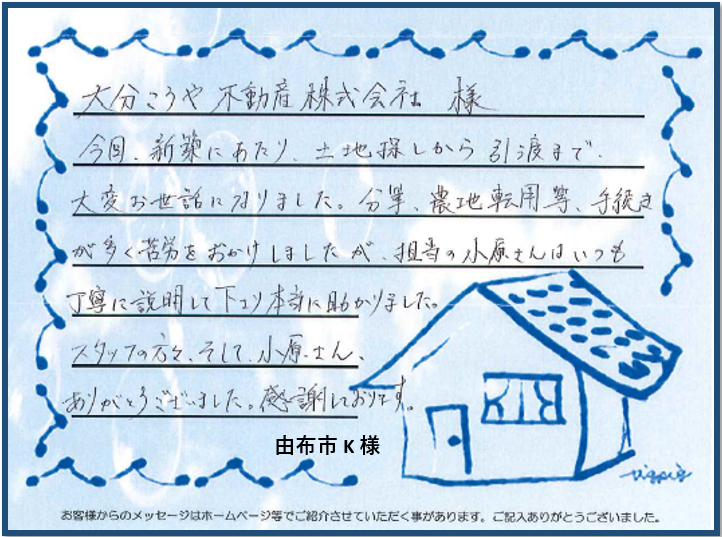 大分こうや不動産株式会社 様
今回、新築にあたり、土地探しから引渡まで、
大変お世話になりました。分筆、農地転用等、手続き
が多く苦労をおかけしましたが、担当の小原さんはいつも
丁寧に説明して下さり本当に助かりました。
スタッフの方々、そして、小原さん、
ありがとうございました。感謝しております。
由布市 K 様
お客様からのメッセージはホームページ等でご紹介させていただく事があります。ご記入ありがとうございました。